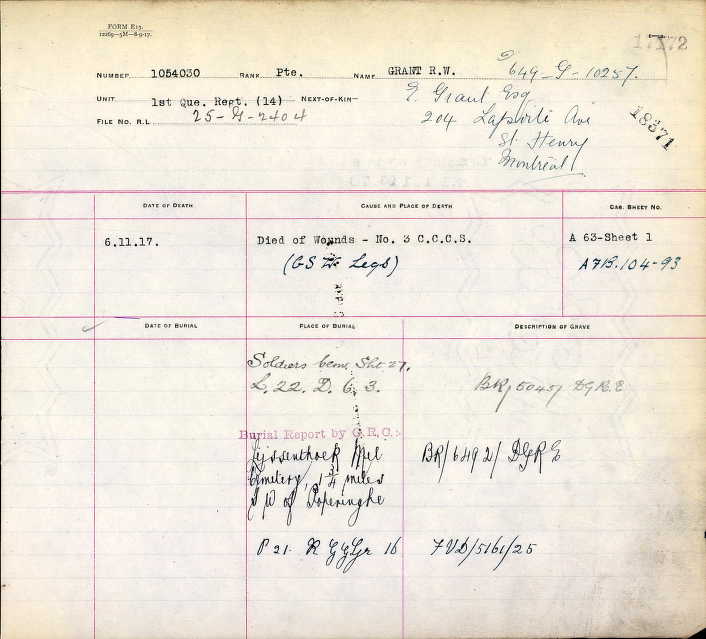 FORM E13.
12269—5M—8-9-17.
17172
NUMBER 1054030 RANK Pte. NAME GRANT R.W.
649-G-10257.
UNIT 1st Que. Regt. (14) NEXT-OF-KIN—
E. Grant Esq
FILE NO. R.L. 25-G-2404
204 Ave
18371
St. Henry
Montreal
DATE OF DEATH CAUSE AND PLACE OF DEATH CAS. SHEET NO.
6.11.17. Died of Wounds - No. 3 C.C.C.S. A 63-Sheet 1
(GSW Legs) A7B.104-93
DATE OF BURIAL PLACE OF BURIAL DESCRIPTION OF GRAVE
Soldiers Cem. Sht 27.
L. 22. D. 6. 3. BR/5045/ DGR.E
Burial Report by G.R.C:-
Lijssenthoek Mil
Cemetery, 1 3/4 miles
S W of Poperinghe
BR/6492/ DGRE
P 21. R Gr 16 FVD/5161/25